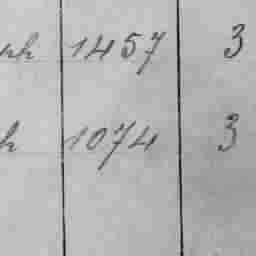 1457 3
1074 3